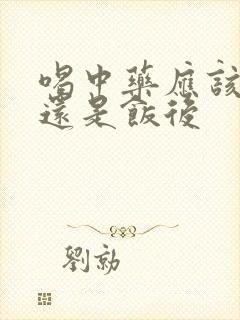 喝中藥應該
還是飯後
劉勃